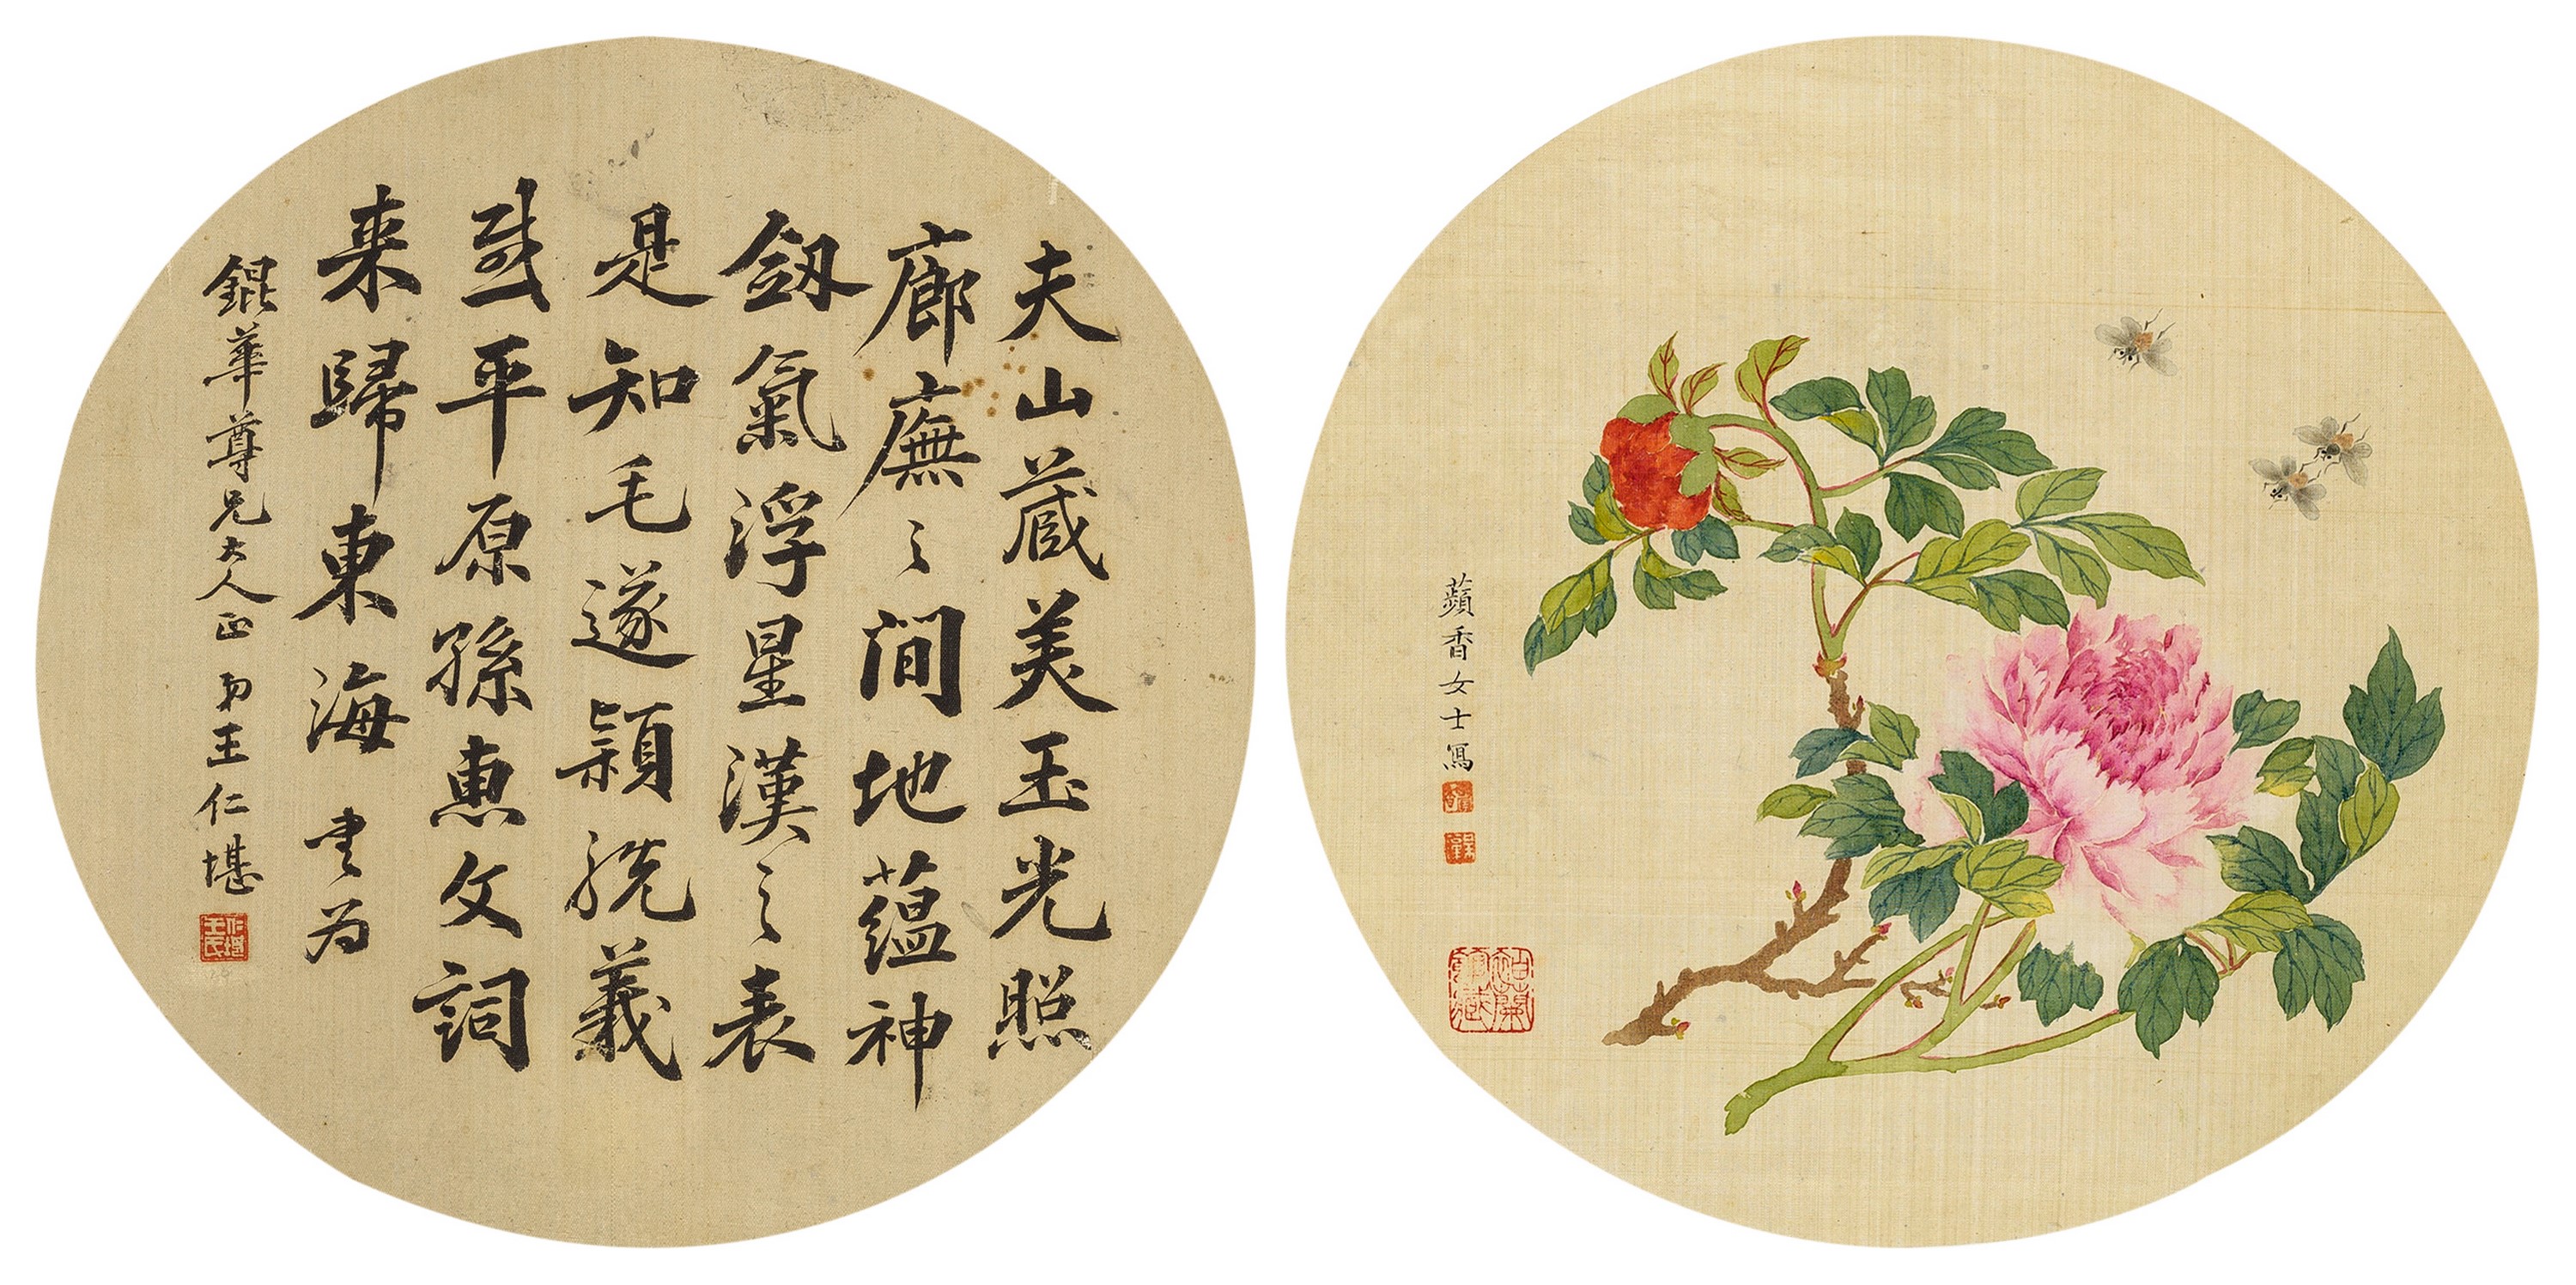 夫山蔵美玉光照
廊廡之間地蘊神
劔氣浮星漢之表
是知毛遂穎脱義
感平原孫恵文詞
来歸東海 書为
錕華尊兄大人正 弟王仁堪
蘋香女士寫